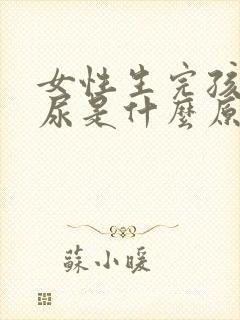 女性生完孩
尿是什麼原
蘇小暖